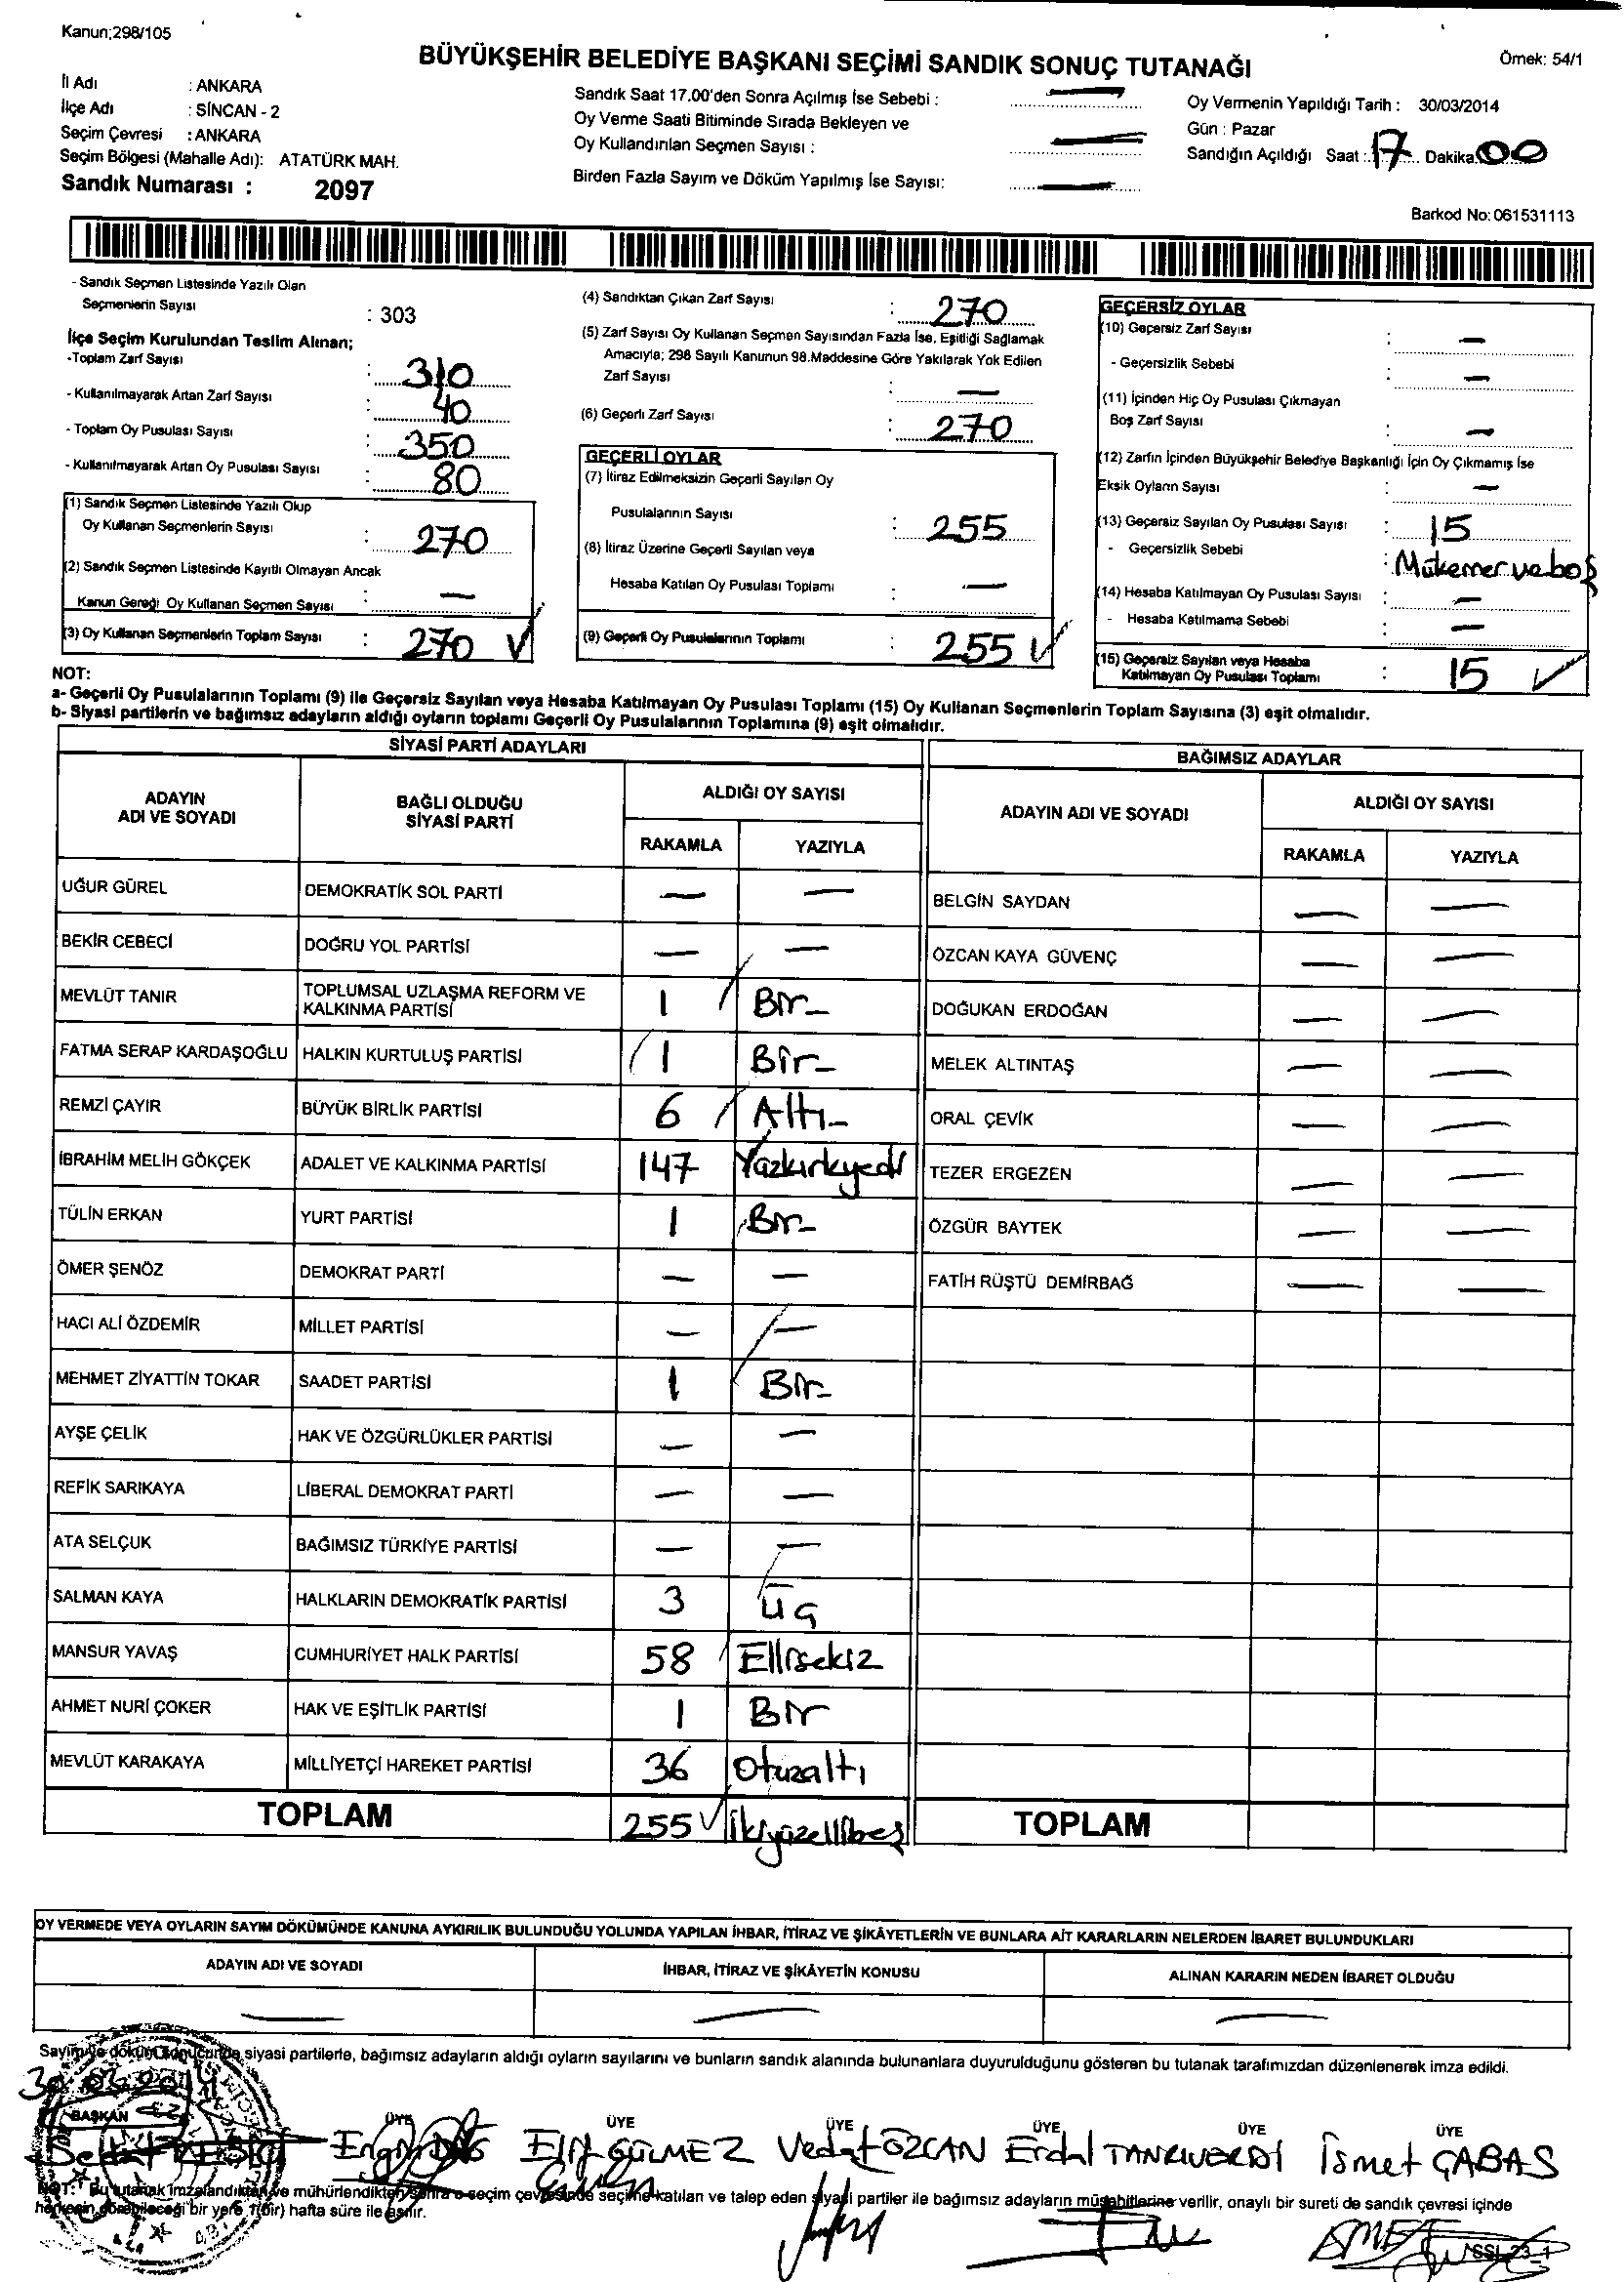 Kanun;298/105
BÜYÜKŞEHİR BELEDİYE BAŞKANI SEÇİMİ SANDIK SONUÇ TUTANAĞI
Örnek: 54/1
İl Adı : ANKARA
İlçe Adı : SİNCAN - 2
Seçim Çevresi : ANKARA
Seçim Bölgesi (Mahalle Adı): ATATÜRK MAH.
Sandık Numarası : 2097
Sandık Saat 17.00'den Sonra Açılmış İse Sebebi : —
Oy Verme Saati Bitiminde Sırada Bekleyen ve
Oy Kullandırılan Seçmen Sayısı : —
Birden Fazla Sayım ve Döküm Yapılmış İse Sayısı: —
Oy Vermenin Yapıldığı Tarih : 30/03/2014
Gün : Pazar
Sandığın Açıldığı Saat : 17 Dakika 00
Barkod No: 061531113
- Sandık Seçmen Listesinde Yazılı Olan
Seçmenlerin Sayısı : 303
İlçe Seçim Kurulundan Teslim Alınan;
-Toplam Zarf Sayısı : 310
- Kullanılmayarak Artan Zarf Sayısı : 40
- Toplam Oy Pusulası Sayısı : 350
- Kullanılmayarak Artan Oy Pusulası Sayısı : 80
(1) Sandık Seçmen Listesinde Yazılı Olup
Oy Kullanan Seçmenlerin Sayısı : 270
(2) Sandık Seçmen Listesinde Kayıtlı Olmayan Ancak
Kanun Gereği Oy Kullanan Seçmen Sayısı : —
(3) Oy Kullanan Seçmenlerin Toplam Sayısı : 270 ✓
(4) Sandıktan Çıkan Zarf Sayısı : 270
(5) Zarf Sayısı Oy Kullanan Seçmen Sayısından Fazla İse, Eşitliği Sağlamak
Amacıyla; 298 Sayılı Kanunun 98.Maddesine Göre Yakılarak Yok Edilen
Zarf Sayısı : —
(6) Geçerli Zarf Sayısı : 270
GEÇERLİ OYLAR
(7) İtiraz Edilmeksizin Geçerli Sayılan Oy
Pusulalarının Sayısı : 255
(8) İtiraz Üzerine Geçerli Sayılan veya
Hesaba Katılan Oy Pusulası Toplamı : —
(9) Geçerli Oy Pusulalarının Toplamı : 255 ✓
GEÇERSİZ OYLAR
(10) Geçersiz Zarf Sayısı : —
- Geçersizlik Sebebi : —
(11) İçinden Hiç Oy Pusulası Çıkmayan
Boş Zarf Sayısı : —
(12) Zarfın İçinden Büyükşehir Belediye Başkanlığı İçin Oy Çıkmamış İse
Eksik Oyların Sayısı : —
(13) Geçersiz Sayılan Oy Pusulası Sayısı : 15
- Geçersizlik Sebebi : Mükerrer ve boş
(14) Hesaba Katılmayan Oy Pusulası Sayısı : —
- Hesaba Katılmama Sebebi : —
(15) Geçersiz Sayılan veya Hesaba
Katılmayan Oy Pusulası Toplamı : 15 ✓
NOT:
a- Geçerli Oy Pusulalarının Toplamı (9) ile Geçersiz Sayılan veya Hesaba Katılmayan Oy Pusulası Toplamı (15) Oy Kullanan Seçmenlerin Toplam Sayısına (3) eşit olmalıdır.
b- Siyasi partilerin ve bağımsız adayların aldığı oyların toplamı Geçerli Oy Pusulalarının Toplamına (9) eşit olmalıdır.
SİYASİ PARTİ ADAYLARI
ADAYIN ADI VE SOYADI
BAĞLI OLDUĞU SİYASİ PARTİ
ALDIĞI OY SAYISI
RAKAMLA YAZIYLA
UĞUR GÜREL DEMOKRATİK SOL PARTİ — —
BEKİR CEBECİ DOĞRU YOL PARTİSİ — —
MEVLÜT TANIR TOPLUMSAL UZLAŞMA REFORM VE KALKINMA PARTİSİ 1 Bir
FATMA SERAP KARDAŞOĞLU HALKIN KURTULUŞ PARTİSİ 1 Bir
REMZİ ÇAYIR BÜYÜK BİRLİK PARTİSİ 6 Altı
İBRAHİM MELİH GÖKÇEK ADALET VE KALKINMA PARTİSİ 147 Yüzkırkyedi
TÜLİN ERKAN YURT PARTİSİ 1 Bir
ÖMER ŞENÖZ DEMOKRAT PARTİ — —
HACI ALİ ÖZDEMİR MİLLET PARTİSİ — —
MEHMET ZİYATTİN TOKAR SAADET PARTİSİ 1 Bir
AYŞE ÇELİK HAK VE ÖZGÜRLÜKLER PARTİSİ — —
REFİK SARIKAYA LİBERAL DEMOKRAT PARTİ — —
ATA SELÇUK BAĞIMSIZ TÜRKİYE PARTİSİ — —
SALMAN KAYA HALKLARIN DEMOKRATİK PARTİSİ 3 Üç
MANSUR YAVAŞ CUMHURİYET HALK PARTİSİ 58 Ellisekiz
AHMET NURİ ÇOKER HAK VE EŞİTLİK PARTİSİ 1 Bir
MEVLÜT KARAKAYA MİLLİYETÇİ HAREKET PARTİSİ 36 Otuzaltı
TOPLAM 255 ✓ İkiyüzellibeş
BAĞIMSIZ ADAYLAR
ADAYIN ADI VE SOYADI
ALDIĞI OY SAYISI
RAKAMLA YAZIYLA
BELGİN SAYDAN — —
ÖZCAN KAYA GÜVENÇ — —
DOĞUKAN ERDOĞAN — —
MELEK ALTINTAŞ — —
ORAL ÇEVİK — —
TEZER ERGEZEN — —
ÖZGÜR BAYTEK — —
FATİH RÜŞTÜ DEMİRBAĞ — —
TOPLAM
OY VERMEDE VEYA OYLARIN SAYIM DÖKÜMÜNDE KANUNA AYKIRILIK BULUNDUĞU YOLUNDA YAPILAN İHBAR, İTİRAZ VE ŞİKÂYETLERİN VE BUNLARA AİT KARARLARIN NELERDEN İBARET BULUNDUKLARI
ADAYIN ADI VE SOYADI İHBAR, İTİRAZ VE ŞİKÂYETİN KONUSU ALINAN KARARIN NEDEN İBARET OLDUĞU
— — —
Sayım ve döküm sonucunda siyasi partilerle, bağımsız adayların aldığı oyların sayılarını ve bunların sandık alanında bulunanlara duyurulduğunu gösteren bu tutanak tarafımızdan düzenlenerek imza edildi.
30.03.2014
BAŞKAN ÜYE ÜYE ÜYE ÜYE ÜYE ÜYE
Elif GÜLMEZ Vedat ÖZCAN Erdal TANRIVERDİ İsmet ÇABAS
NOT: Bu tutanak imzalandıktan ve mühürlendikten sonra o seçim çevresinde seçime katılan ve talep eden siyasi partiler ile bağımsız adayların müşahitlerine verilir, onaylı bir sureti de sandık çevresi içinde
herkesin görebileceği bir yere 1(bir) hafta süre ile asılır.